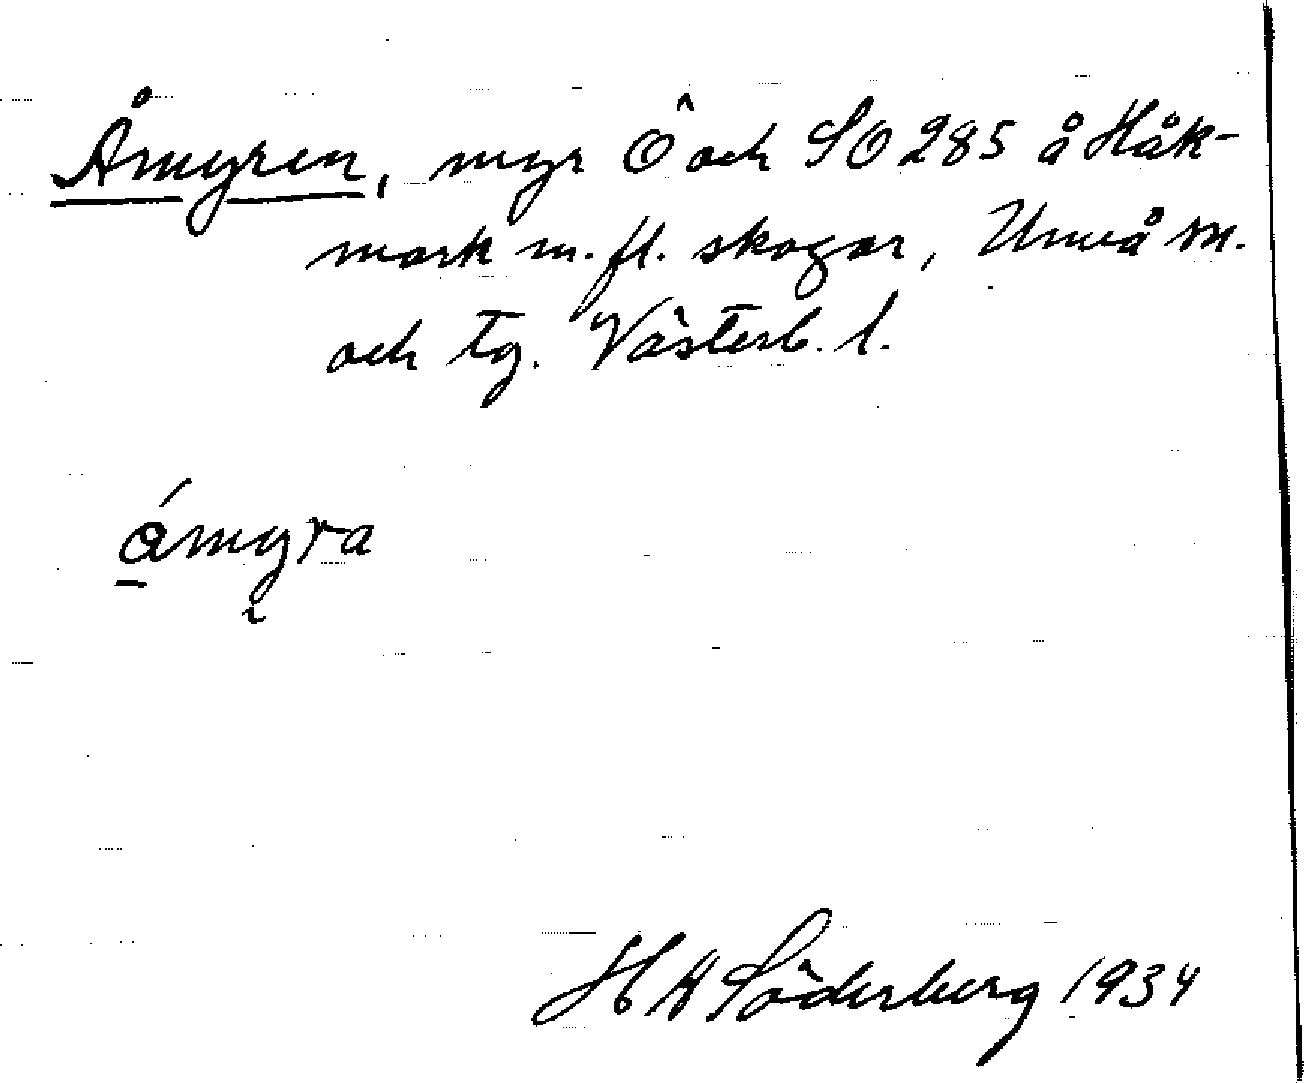 Åmyren, myr Ö och SO 285 å Håk-
mark m.fl. skogar, Umeå sn.
och tg. Västerb. l.
ámyra
Söderberg 1934